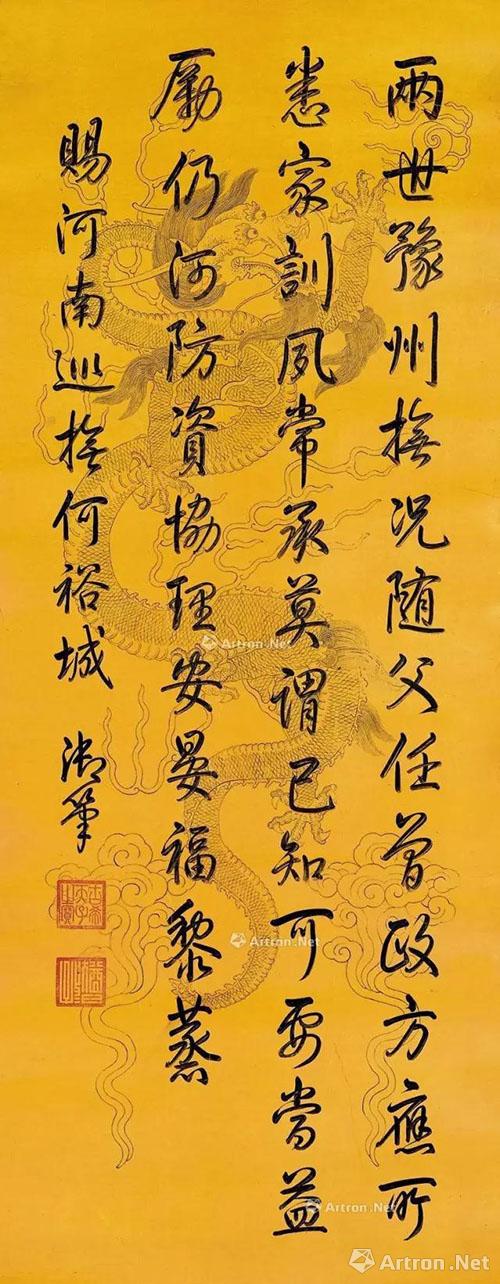 兩世豫州撫況随父任曾政方應所
悉家訓夙常承莫謂已知可要當益
勵仍河防資協理安晏福黎蒸
賜河南巡撫何裕城 御筆
古希天子之寶
猶日孜孜
Artron.Net
Artron.Net
Artron.Net
Artron.Net